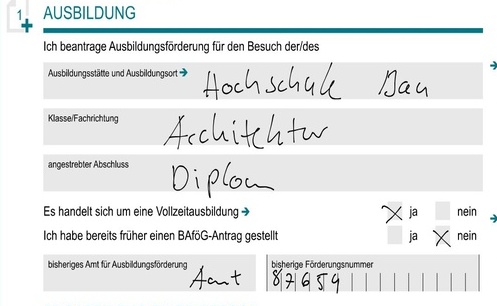 1 AUSBILDUNG
Ich beantrage Ausbildungsförderung für den Besuch der/des
Ausbildungsstätte und Ausbildungsort → Hochschule Bau
Klasse/Fachrichtung Architektur
angestrebter Abschluss Diplom
Es handelt sich um eine Vollzeitausbildung → ☒ ja ☐ nein
Ich habe bereits früher einen BAföG-Antrag gestellt ☐ ja ☒ nein
bisheriges Amt für Ausbildungsförderung bisherige Förderungsnummer
Amt 87659